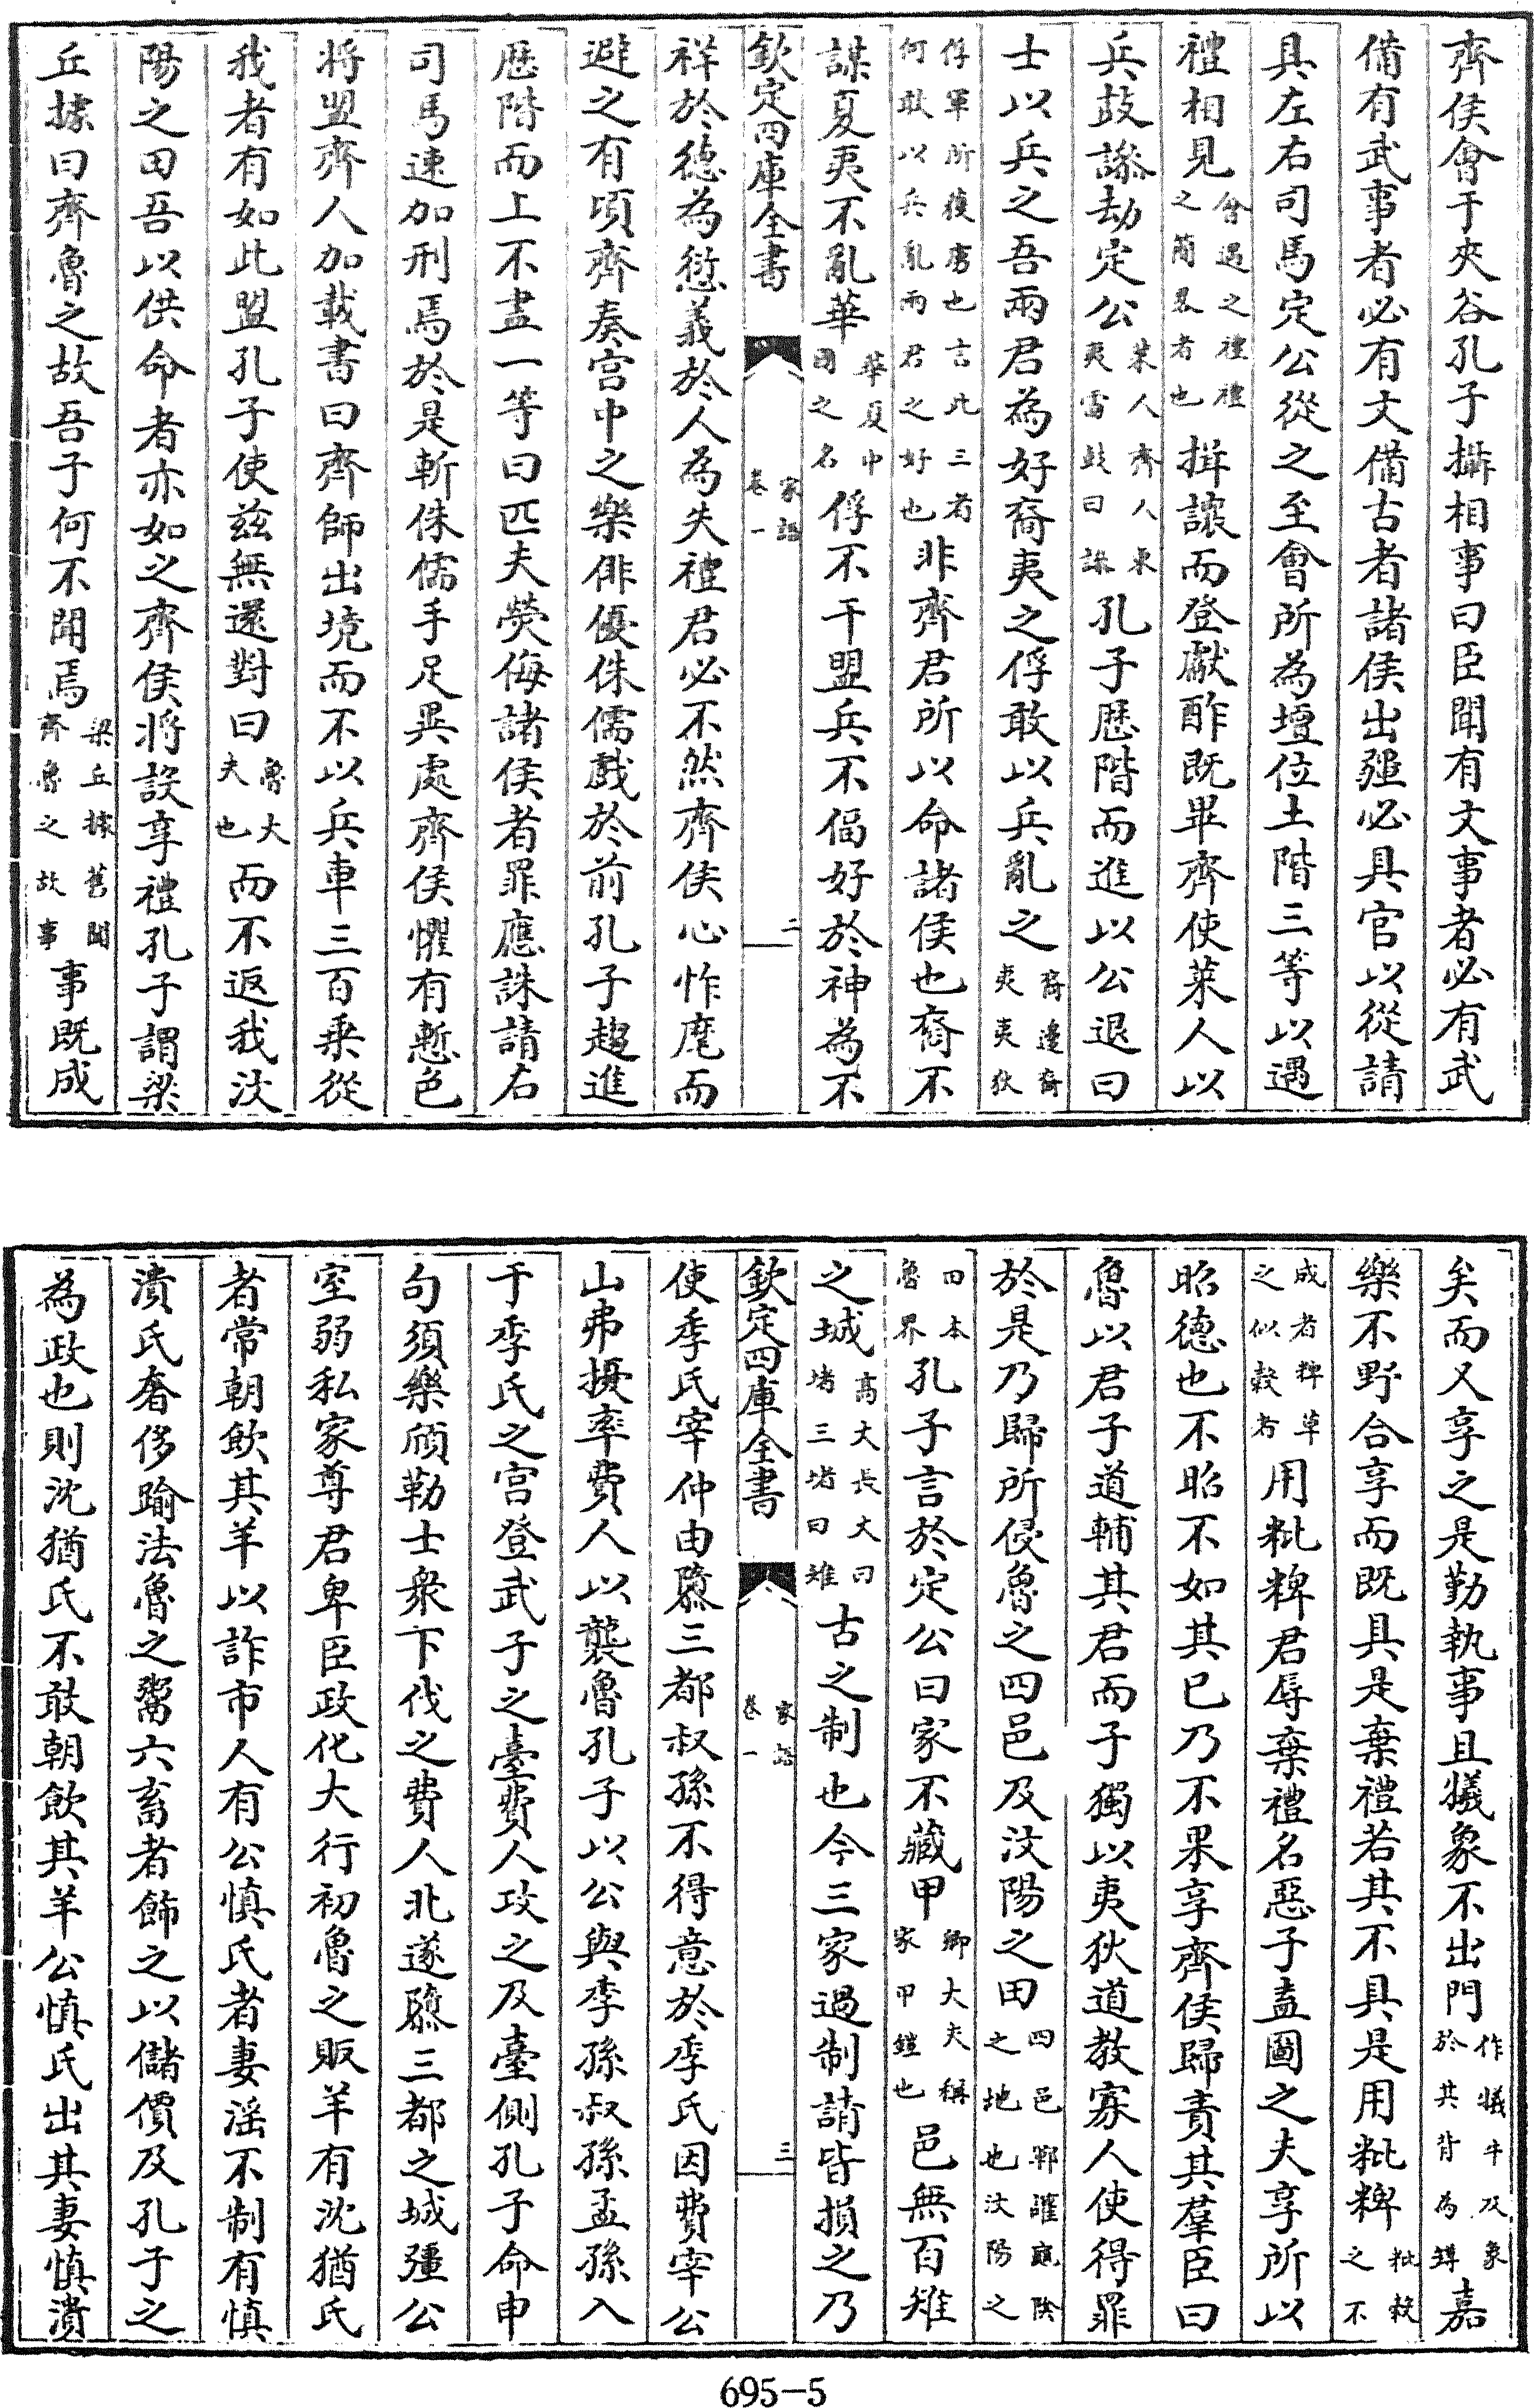 齊侯會于夾谷孔子攝相事曰臣聞有文事者必有武
備有武事者必有文備古者諸侯出疆必具官以從請
具左右司馬定公從之至會所為壇位土階三等以遇
禮相見會遇之禮禮之簡畧者也揖讓而登獻酢既畢齊使萊人以
兵鼓譟劫定公萊人齊人東夷雷鼓曰譟孔子歷階而進以公退曰
士以兵之吾兩君為好裔夷之俘敢以兵亂之裔邊裔夷夷狄
俘軍所獲虜也言此三者何敢以兵亂兩君之好也非齊君所以命諸侯也裔不
謀夏夷不亂華華夏中國之名俘不干盟兵不偪好於神為不
欽定四庫全書 家語卷一 二
祥於德為愆義於人為失禮君必不然齊侯心怍麾而
避之有頃齊奏宮中之樂俳優侏儒戲於前孔子趨進
歷階而上不盡一等曰匹夫熒侮諸侯者罪應誅請右
司馬速加刑焉於是斬侏儒手足異處齊侯懼有慙色
將盟齊人加載書曰齊師出境而不以兵車三百乗從
我者有如此盟孔子使兹無還對曰魯大夫也而不返我汶
陽之田吾以供命者亦如之齊侯將設享禮孔子謂梁
丘據曰齊魯之故吾子何不聞焉梁丘據舊聞齊魯之故事事既成
矣而又享之是勤執事且犧象不出門作犧牛及象於其背為罇嘉
樂不野合享而既具是棄禮若其不具是用粃粺粃穀之不
成者粺草之似穀者用粃粺君辱棄禮名惡子盍圖之夫享所以
昭德也不昭不如其已乃不果享齊侯歸責其羣臣曰
魯以君子道輔其君而子獨以夷狄道教寡人使得罪
於是乃歸所侵魯之四邑及汶陽之田四邑鄆讙龜陰之地也汶陽之
田本魯界孔子言於定公曰家不藏甲卿大夫稱家甲鎧也邑無百雉
之城高丈長丈曰堵三堵曰雉古之制也今三家過制請皆損之乃
欽定四庫全書 家語卷一 三
使季氏宰仲由隳三都叔孫不得意於季氏因費宰公
山弗擾率費人以襲魯孔子以公與季孫叔孫孟孫入
于季氏之宮登武子之臺費人攻之及臺側孔子命申
句須樂頎勒士衆下伐之費人北遂隳三都之城彊公
室弱私家尊君卑臣政化大行初魯之販羊有沈猶氏
者常朝飲其羊以詐市人有公慎氏者妻淫不制有慎
潰氏奢侈踰法魯之鬻六畜者飾之以儲價及孔子之
為政也則沈猶氏不敢朝飲其羊公慎氏出其妻慎潰
695-5